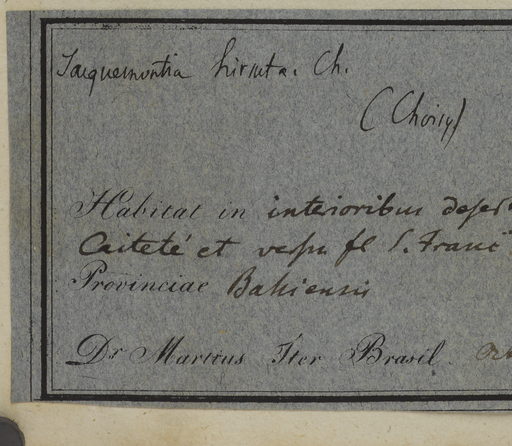 Jacquemontia hirsuta. Ch.
(Choisy)
Habitat in interioribus deser
Caiteté et versu fl S. Franc
Provinciae Bahiensis
Dr Martius Iter Brasil.